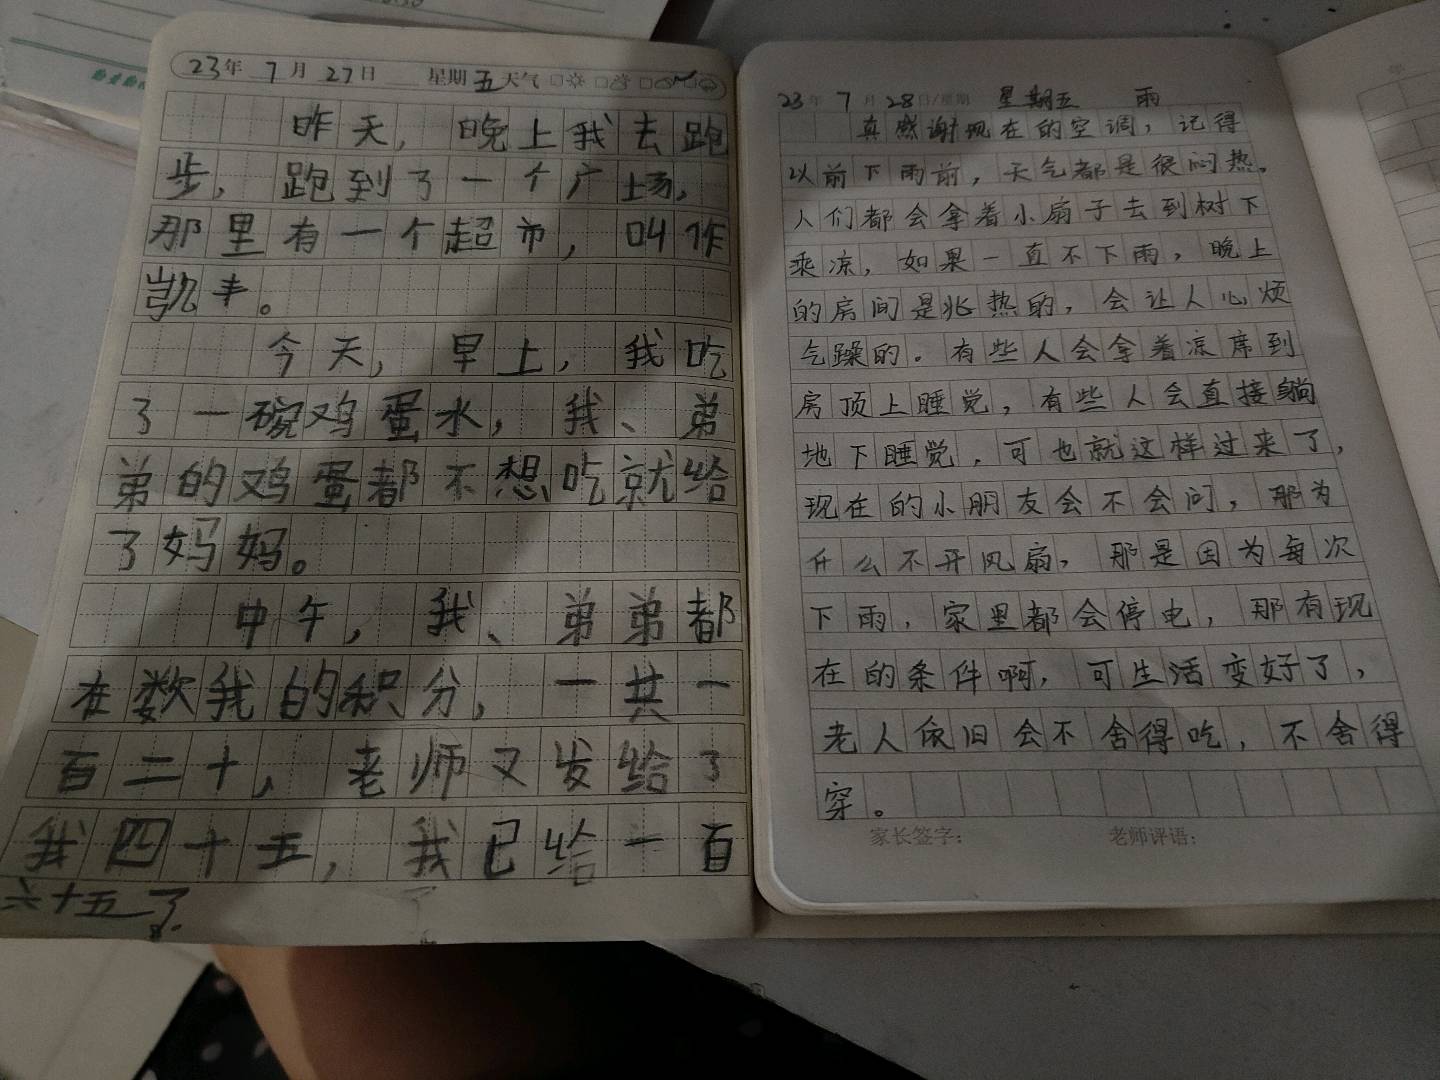 23年 7月 27日 星期五 天气
昨天，晚上我去跑
步，跑到了一个广场，
那里有一个超市，叫作
凯丰。
今天，早上，我吃
了一碗鸡蛋水，我、弟
弟的鸡蛋都不想吃就给
了妈妈。
中午，我、弟弟都
在数我的积分，一共一
百二十，老师又发给了
我四十五，我已给一百
六十五了
23年 7月 28日/星期 星期五 雨
真感谢现在的空调，记得
以前下雨前，天气都是很闷热。
人们都会拿着小扇子去到树下
乘凉，如果一直不下雨，晚上
的房间是非热的，会让人心烦
气躁的。有些人会拿着凉席到
房顶上睡觉，有些人会直接躺
地下睡觉，可也就这样过来了，
现在的小朋友会不会问，那为
什么不开风扇，那是因为每次
下雨，家里都会停电，那有现
在的条件啊，可生活变好了，
老人依旧会不舍得吃，不舍得
穿。
家长签字： 老师评语：